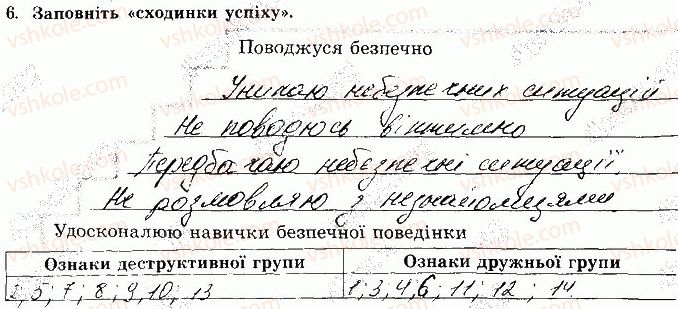 6. Заповніть «сходинки успіху».
Поводжуся безпечно
Уникаю небезпечних ситуацій
Не поводюсь віктимно
Передбачаю небезпечні ситуації
Не розмовляю з незнайомцями
Удосконалюю навички безпечної поведінки
Ознаки деструктивної групи Ознаки дружньої групи
2; 5; 7; 8; 9; 10; 13 1; 3, 4, 6; 11; 12; 14
vshkole.com